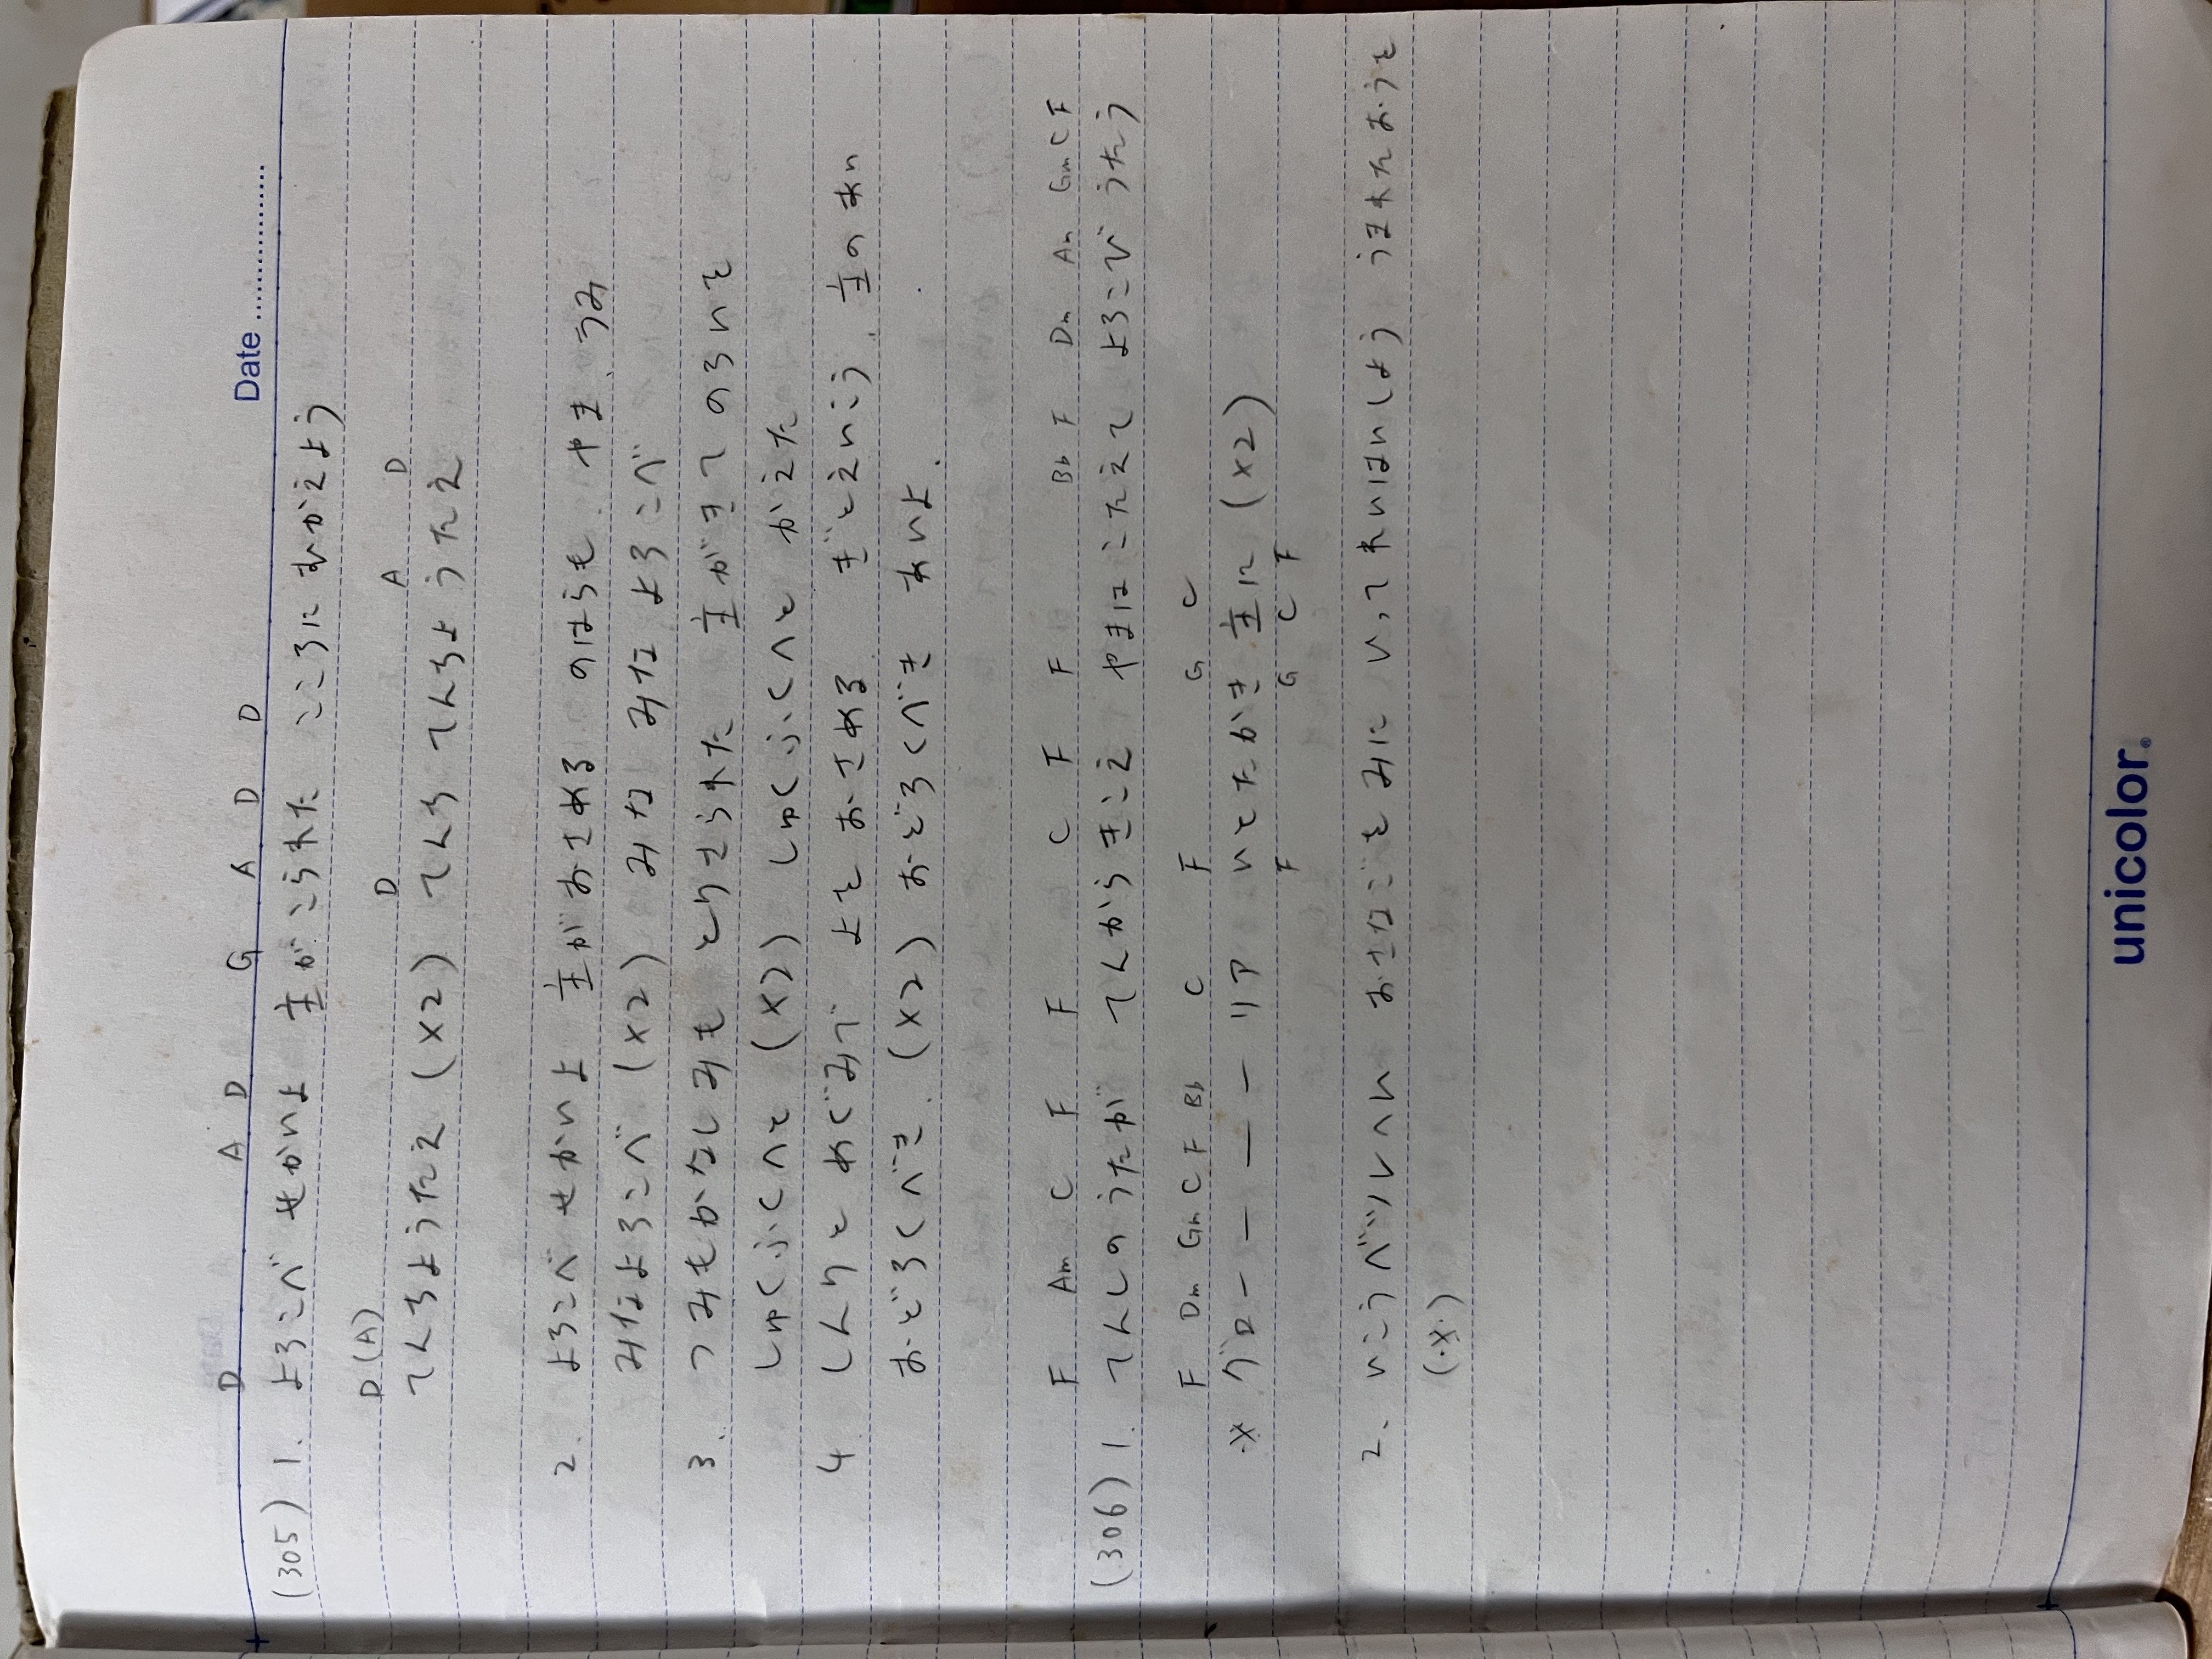 Date
D A D G A D D
(305) 1. よろこべ せかいよ 主がこられた こころにむかえよう
D(A) D A D
てんちようたえ (×2) てんち てんちようたえ
2. よろこべ せかいよ 主がおさめる のはらも やま うみ
みなよろこべ (×2) みな みな よろこべ
3. つみもかなしみも とりさられた 主がきて のろいを
しゅくふくへと (×2) しゅくふくへと かえた
4 しんりと めぐみで よを おさめる ぎと えいこう 主の あい
おどろくべき (×2) おどろくべき あいよ
F Am C F F C F F Bb F Dm Am Gm C F
(306) 1. てんしのうたが てんからきこえ やまはこたえて よろこび うたう
F Dm Gm C F Bb C F G C
※ グローーーーリア いとたかき 主に (×2)
F G C F
2. いこうベツレヘム おさなごをみに いってれいはいしよう うまれたおうを
(※)
unicolor.